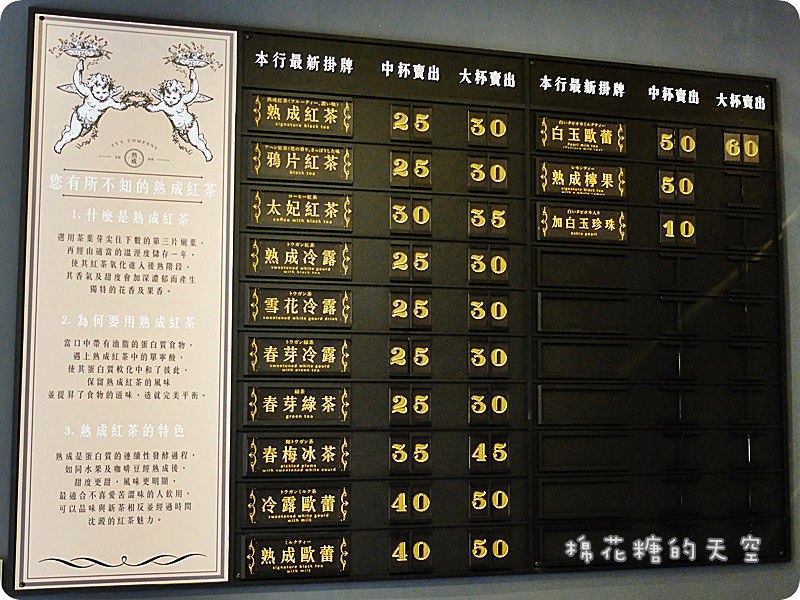 TEA COMPANY
熟成
您有所不知的熟成紅茶
1. 什麼是熟成紅茶
選用茶葉芽尖往下數的第三片嫩葉，
再經由適當的溫溼度儲存一年、
使其紅茶氧化進入後熟階段，
其香氣及甜度會加深濃郁而產生
獨特的花香及果香。
2. 為何要用熟成紅茶
當口中帶有油脂的蛋白質食物，
遇上熟成紅茶中的單寧酸，
使其蛋白質軟化中和了彼此，
保留熟成紅茶的風味
並提昇了食物的滋味，造就完美平衡。
3. 熟成紅茶的特色
熟成是蛋白質的連續性發酵過程，
如同水果及咖啡豆經熟成後，
甜度更甜，風味更明顯，
最適合不喜愛苦澀味的人飲用，
可以品味與新茶相反並經過時間
沈澱的紅茶魅力。
本行最新掛牌 中杯賣出 大杯賣出
熟成紅茶 25 30
signature black tea
鴉片紅茶 25 30
black tea
コーヒー紅茶
太妃紅茶 30 35
coffee with black tea
トウガン紅茶
熟成冷露 25 30
sweetened white gourd
with black tea
トウガン茶
雪花冷露 25 30
sweetened white gourd drink
トウガン緑茶
春芽冷露 25 30
sweetened white gourd
with green tea
緑茶
春芽綠茶 25 30
green tea
梅トウガン茶
春梅冰茶 35 45
pickled plums
with sweetened white gourd
トウガンミルク茶
冷露歐蕾 40 50
sweetened white gourd
with milk
ミルクティー
熟成歐蕾 40 50
signature black tea
with milk
本行最新掛牌 中杯賣出 大杯賣出
白いタピオカミルクティー
白玉歐蕾 50 60
レモンティー
熟成檸果 50
signature black tea
白いタピオカ入り
加白玉珍珠 10
Extra pearl
棉花糖的天空